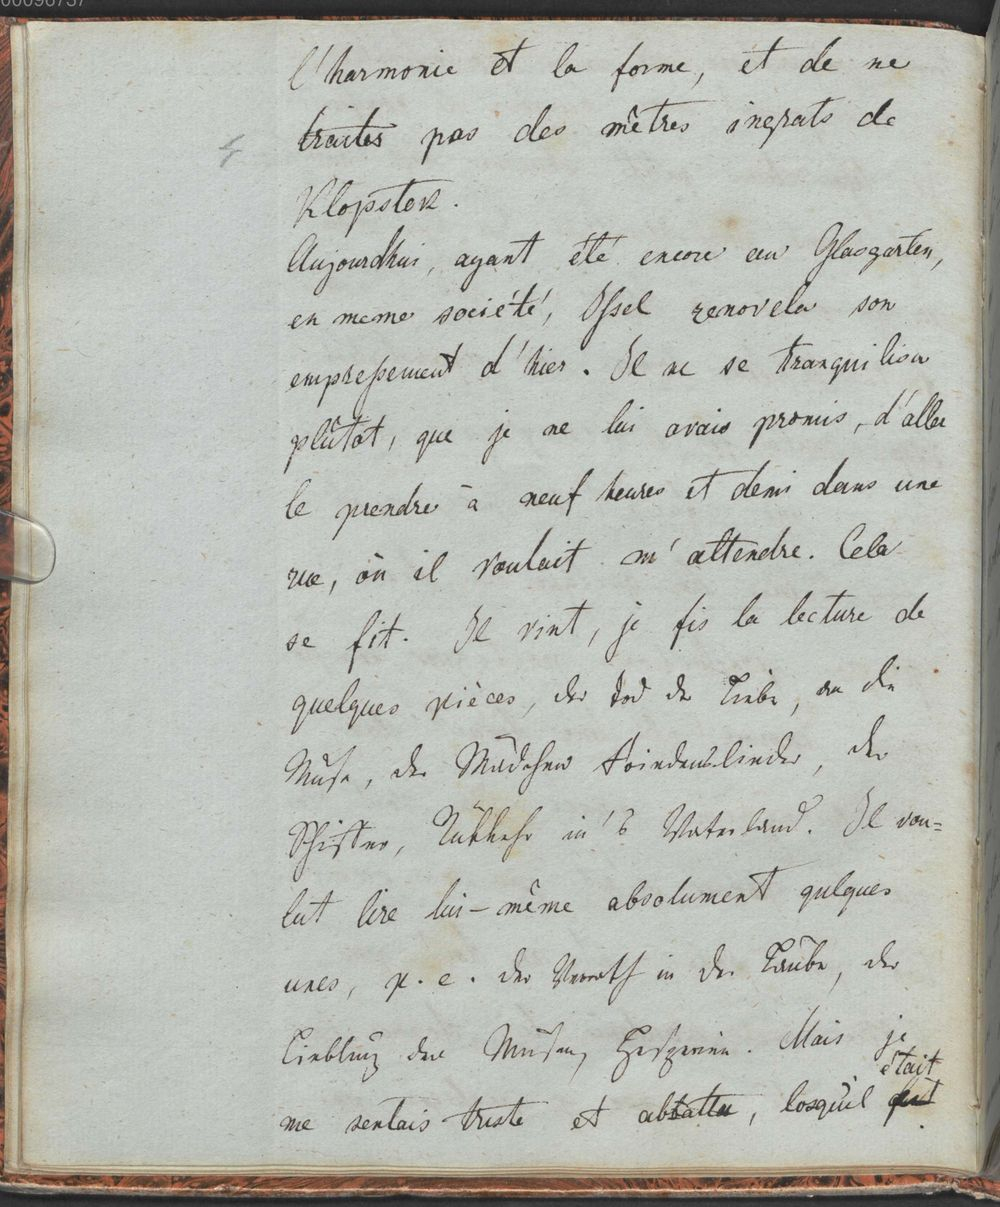 00090757
l'harmonie et la forme, et de ne
traiter pas des mêtres ingrats de
Klopstok.
Aujourdhui, ayant été encore au Glasgarten,
en meme société, Issel renovela son
empressement d'hier. Il ne se tranquilisa
plûtot, que je ne lui avais promis, d'aller
le prendre à neuf heures et demi dans une
rue, où il voulait m'attendre. Cela
se fit. Il vint, je fis la lecture de
quelques pièces, der Tod der Liebe, an die
Muse, der Mädchen Friedenslieder, der
Schiffer, Rükkehr in's Vaterland. Il vou=
lut lire lui-même absolument qulques
unes, p. e. der Verrath in der Laube, der
Liebling der Musen, Hesperien. Mais je
me sentais triste et abbattu, losqu'il
était
fut